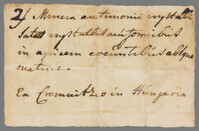 Minera antimonii crystalli
sata crystallis antimonii
in apicem exeuntibus absque
matrice.
Ex Cremnitz in Hungaria